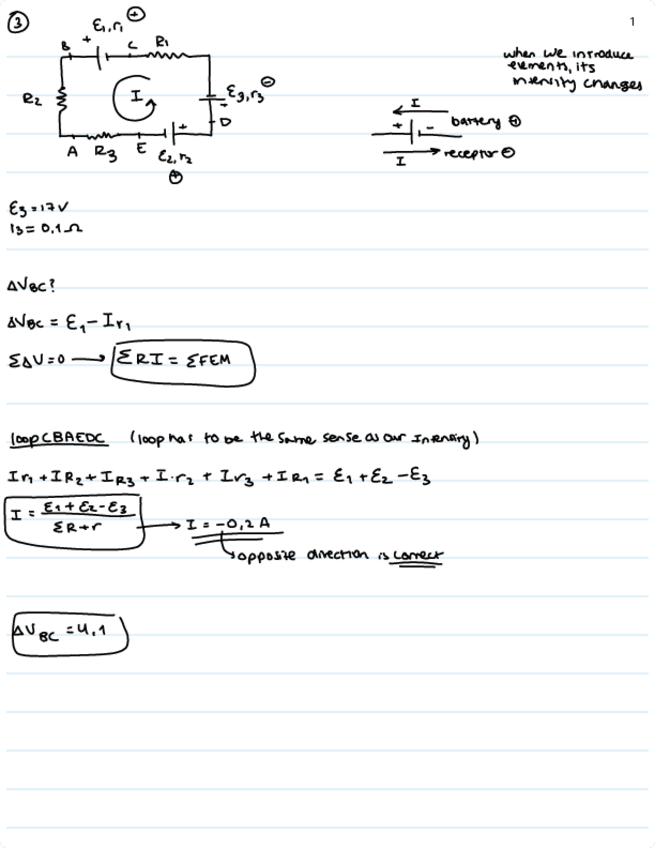 1
③ ε₁,r₁ ⊕
+
B C R₁
when we introduce
elements, its
intensity changes
R₂ I ε₃,r₃ ⊖
+
D
A R₃ E ε₂,r₂
+
⊕
I
+ - battery ⊕
I receptor ⊖
ε₃ = 17V
r₃ = 0,1Ω
ΔV_BC?
ΔV_BC = ε₁ - Ir₁
ΣΔV=0 → ΣRI = ΣFEM
loop CBAEDC (loop has to be the same sense as our Intensity)
Ir₁ + IR₂ + IR₃ + I·r₂ + Ir₃ + IR₁ = ε₁ + ε₂ - ε₃
I = (ε₁ + ε₂ - ε₃) / (ΣR+r) → I = -0,2 A
opposite direction is correct
ΔV_BC = 4,1